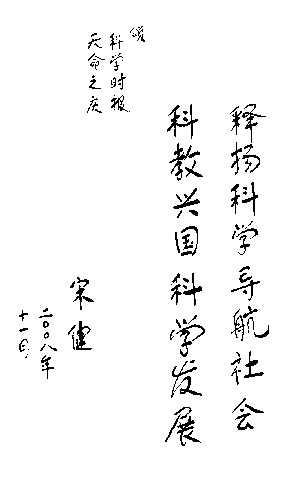 释扬科学导航社会
科教兴国科学发展
颂
科学时报
天命之庆
宋健
二〇〇八年
十一月